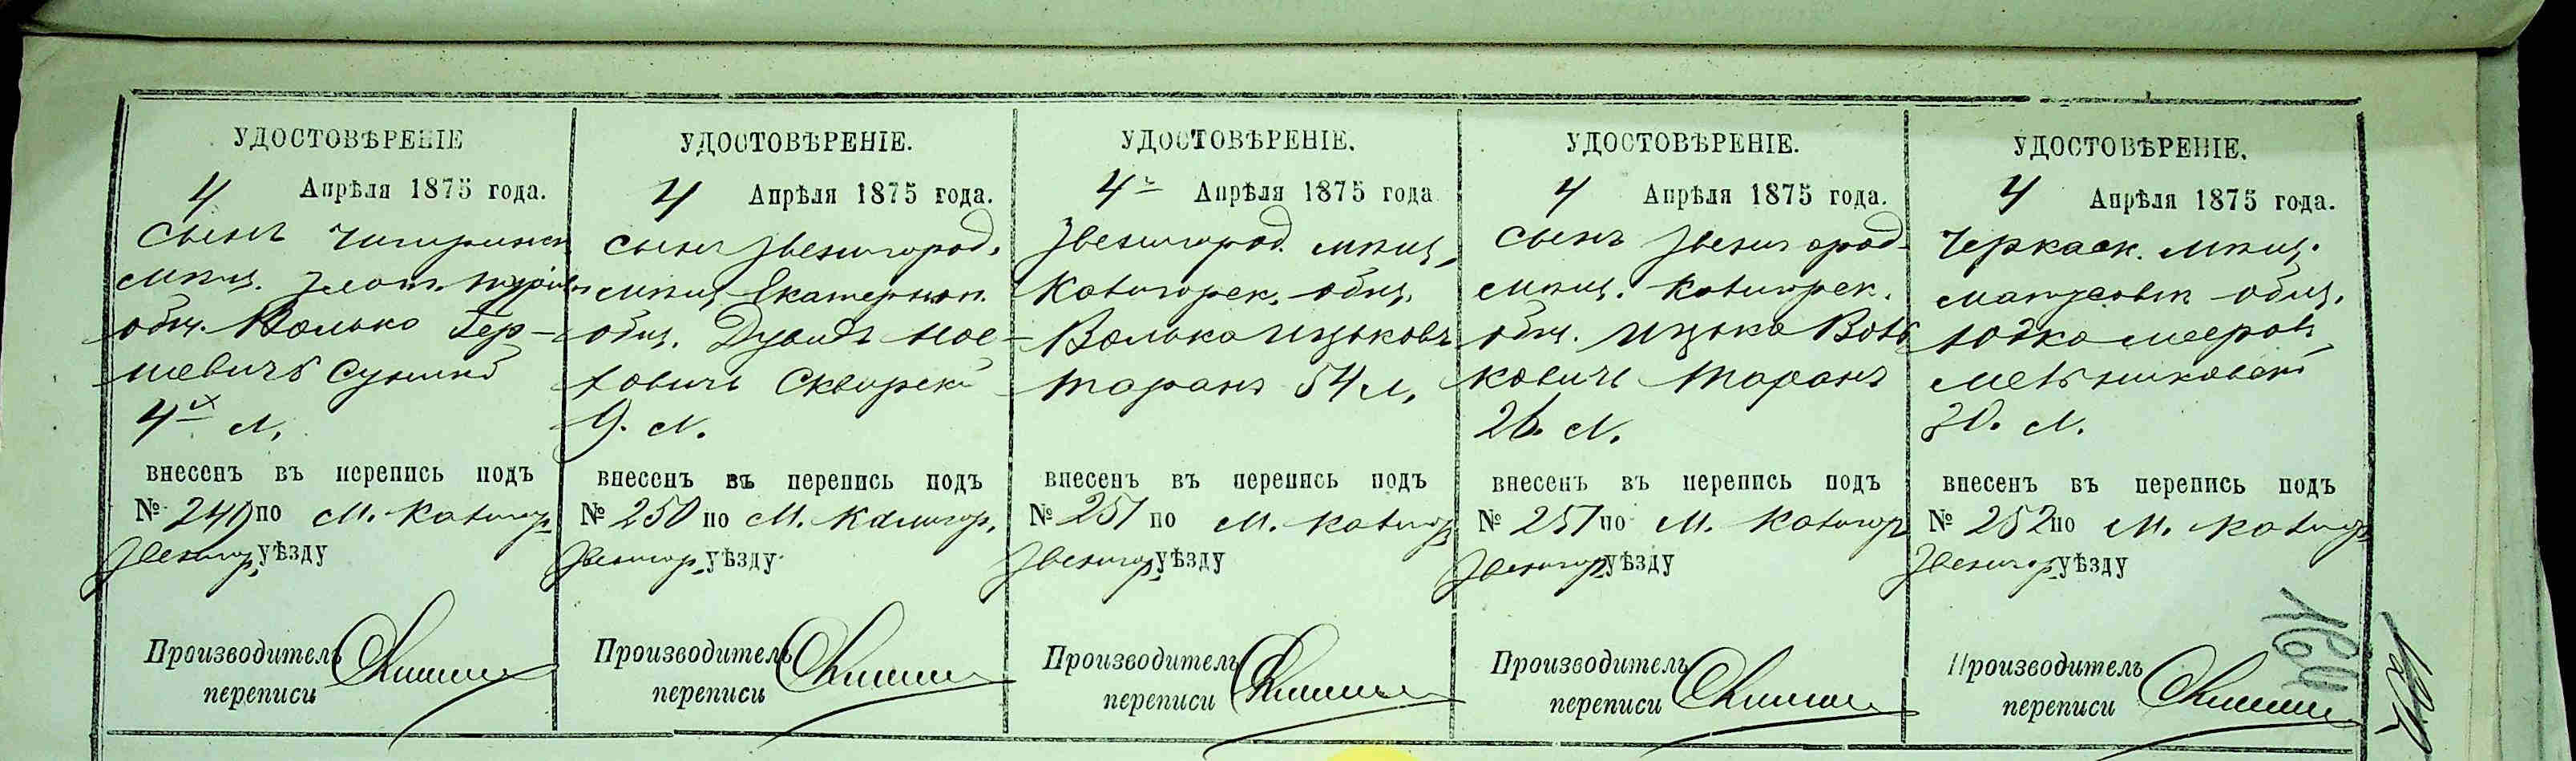 УДОСТОВѢРЕНІЕ
4 Апрѣля 1875 года.
Сынъ Чигиринск
мѣщ.
общ. Волько Гер-
шевичъ
4х л.
внесенъ въ перепись подъ
№ 249 по М. Кальнигор.
Звенигор. уѣзду
Производитель
переписи
УДОСТОВѢРЕНІЕ.
4 Апрѣля 1875 года.
сынъ Звенигород.
мѣщ. Екатериноп.
общ. Дувидъ Мое-
ховичъ Сквирскій
9. л.
внесенъ въ перепись подъ
№ 250 по М. Калигор.
Звенигор. уѣзду
Производитель
переписи
УДОСТОВѢРЕНІЕ.
4 Апрѣля 1875 года
Звенигород. мѣщ.
Кальнигорск. общ.
Волько Ицьковъ
Таранъ 54 л.
внесенъ въ перепись подъ
№ 251 по М. Кальнигор.
Звенигор. уѣзду
Производитель
переписи
УДОСТОВѢРЕНІЕ.
4 Апрѣля 1875 года.
Сынъ Звенигород-
мѣщ. Кальнигорск.
общ. Ицько Воль
ковичъ Таранъ
26. л.
внесенъ въ перепись подъ
№ 251 по М. Кальнигор
Звенигор. уѣзду
Производитель
переписи
УДОСТОВѢРЕНІЕ.
4 Апрѣля 1875 года.
Черкаск. мѣщ.
общ.
Юдко Мееров.
Мельниковскій
30. л.
внесенъ въ перепись подъ
№ 252 по М. Кальнигор
Звенигор. уѣзду
Производитель
переписи
164